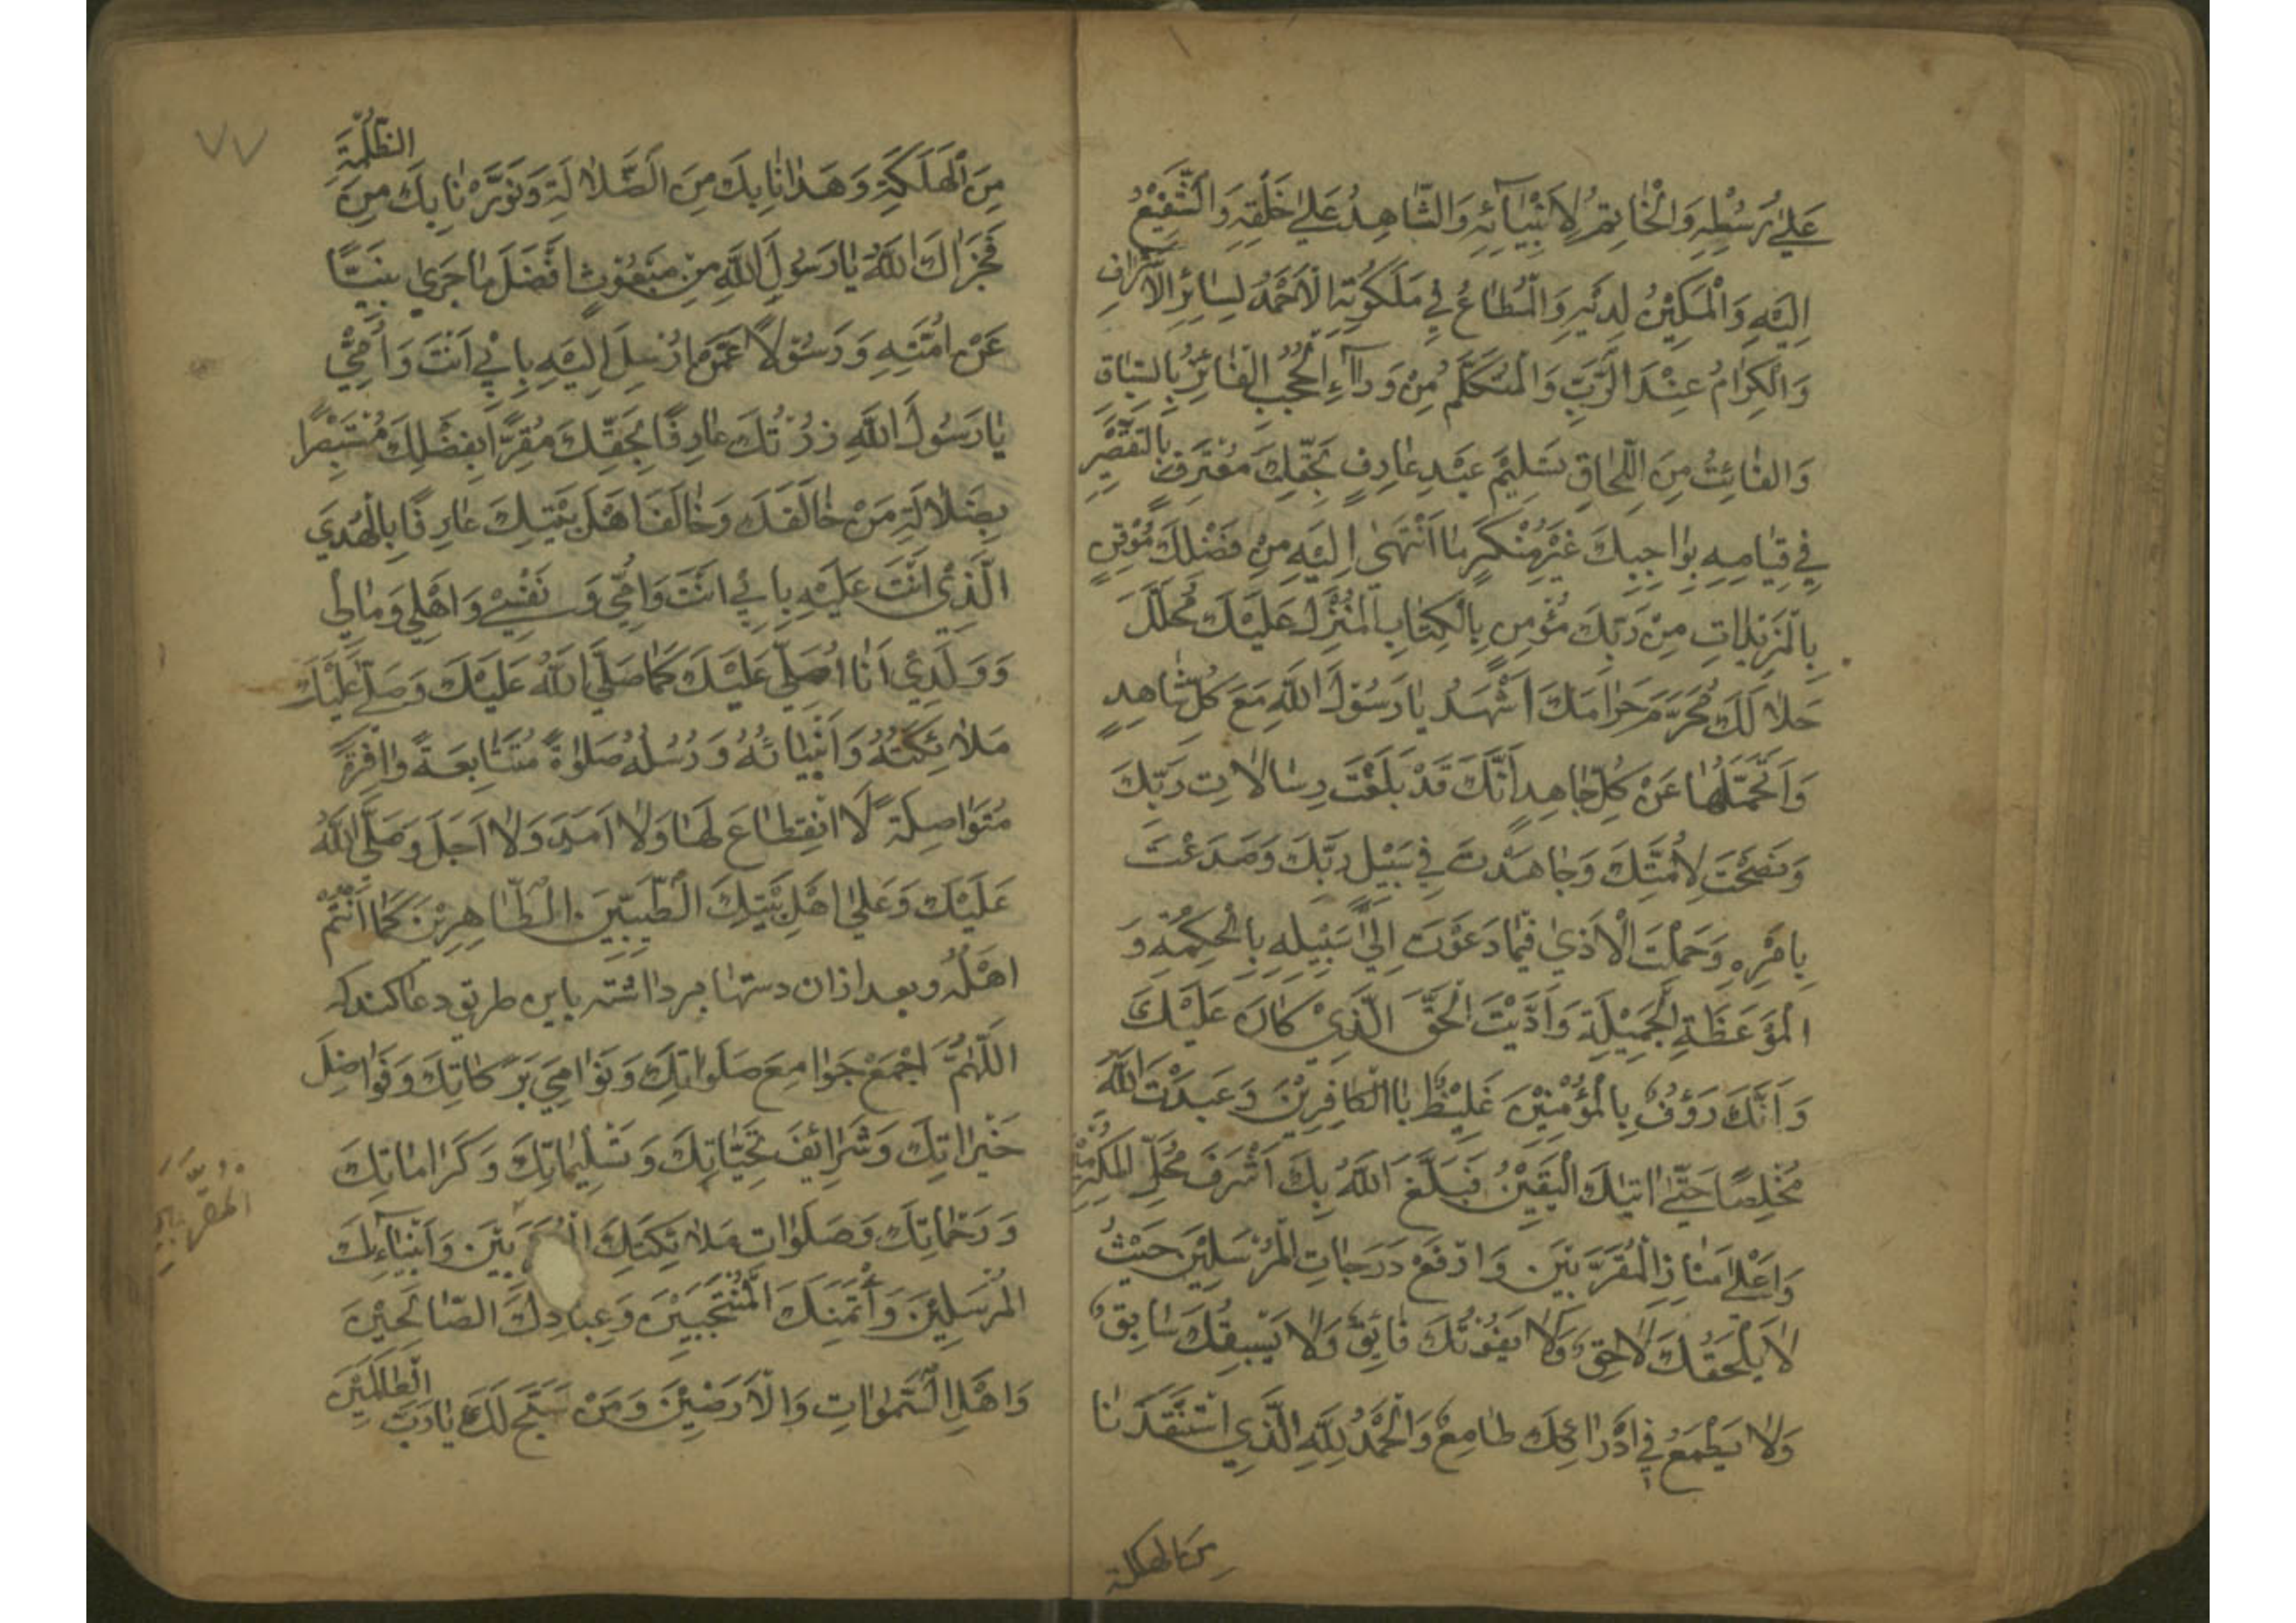 عَلىٰ رُسُلِهِ وَالْخٰاتِمُ لِاَنْبِيٰآئِهِ وَالشّٰاهِدُ عَلىٰ خَلْقِهِ وَالشَّفِيْعُ
اِلَيْهِ وَالْمَكِيْنُ لَدَيْهِ وَالْمُطٰاعُ فِي مَلَكُوتِهِ الْاَحْمَدُ لِسٰائِرِ الْاَشْرٰافِ
وَالْكِرٰامُ عِنْدَ الرَّبِّ وَالْمُتَكَلَّمُ مِنْ وَرٰآءِ الْحُجُبِ الْفٰائِزُ بِالسِّبٰاقِ
وَالفٰائِتُ مِنَ اللِّحٰاقِ تَسْلِيْمَ عَبْدٍ عٰارِفٍ بِحَقِّكَ مُعْتَرِفٍ بِالتَّقْصِيْرِ
فِي قِيٰامِهِ بِوٰاجِبِكَ غَيْرِ مُنْكِرٍ مٰا انْتَهىٰ اِلَيْهِ مِنْ فَضْلِكَ مُوْقِنٍ
بِالْمَزِيْدٰاتِ مِنْ رَبِّكَ مُؤْمِنٍ بِالْكِتٰابِ الْمُنْزَلِ عَلَيْكَ مُحَلِّلٍ
حَلٰالَكَ مُحَرِّمٍ حَرٰامَكَ اَشْهَدُ يٰا رَسُوْلَ اللّٰهِ مَعَ كُلِّ شٰاهِدٍ
وَاَتَحَمَّلُهٰا عَنْ كُلِّ جٰاهِدٍ اَنَّكَ قَدْ بَلَّغْتَ رِسٰالٰاتِ رَبِّكَ
وَنَصَحْتَ لِاُمَّتِكَ وَجٰاهَدْتَ فِي سَبِيْلِ رَبِّكَ وَصَدَعْتَ
بِاَمْرِهِ وَحَمَلْتَ الْاَذىٰ فِيْمٰا دَعَوْتَ اِلىٰ سَبِيْلِهِ بِالْحِكْمَةِ وَ
الْمَوْعِظَةِ الْجَمِيْلَةِ وَاَدَّيْتَ الْحَقَّ الَّذِيْ كٰانَ عَلَيْكَ
وَاَنَّكَ رَؤُفٌ بِالْمُؤْمِنِيْنَ غَلِيْظٌ بٰاالْكٰافِرِيْنَ وَعَبَدْتَ اللّٰهَ
مُخْلِصًا حَتّىٰ اَتٰيكَ الْيَقِيْنُ فَبَلَّغَ اللّٰهُ بِكَ اَشْرَفَ مَحَلِّ الْمُكَرَّمِيْنَ
وَاَعْلىٰ مَنٰازِلِ الْمُقَرَّبِيْنَ وَارْفَعَ دَرَجٰاتِ الْمُرْسَلِيْنَ حَيْثُ
لٰا يَلْحَقُكَ لٰاحِقٌ وَلٰا يَفُوْتُكَ فٰائِقٌ وَلٰا يَسْبِقُكَ سٰابِقٌ
وَلٰا يَطْمَعُ فِي اِدْرٰاكِكَ طٰامِعٌ وَالْحَمْدُ لِلّٰهِ الَّذِي اسْتَنْقَذَنٰا
مِنَ الهلكة
٧٧
مِنَ الْهَلَكَةِ وَهَدٰانٰا بِكَ مِنَ الضَّلٰالَةِ وَنَوَّرَنٰا بِكَ مِنَ الظُّلْمَةِ
فَجَزٰاكَ اللّٰهُ يٰا رَسُولَ اللّٰهِ مِنْ مَبْعُوْثٍ اَفْضَلَ مٰا جَزىٰ نَبِيًّا
عَنْ اُمَّتِهِ وَرَسُوْلًا عَمَّنْ اُرْسِلَ اِلَيْهِ بِاَبِيْ اَنْتَ وَاُمِّيْ
يٰا رَسُوْلَ اللّٰهِ زُرْتُكَ عٰارِفًا بِحَقِّكَ مُقِرًّا بِفَضْلِكَ مُسْتَبْصِرًا
بِضَلٰالَةِ مَنْ خٰالَفَكَ وَخٰالَفَ اَهْلَ بَيْتِكَ عٰارِفًا بِالْهُدَي
الَّذِيْ اَنْتَ عَلَيْهِ بِاَبِيْ اَنْتَ وَاُمِّي وَنَفْسِيْ وَاَهْلِي وَمٰالِي
وَوَلَدِيْ اَنٰا اُصَلِّي عَلَيْكَ كَمٰا صَلَّى اللّٰهُ عَلَيْكَ وَصَلّىٰ عَلَيْكَ
مَلٰائِكَتُهُ وَاَنْبِيٰائُهُ وَرُسُلُهُ صَلٰوةً مُتَتٰابِعَةً وٰافِرَةً
مُتَوٰاصِلَةً لَا انْقِطٰاعَ لَهٰا وَلٰا اَمَدَ وَلٰا اَجَلَ وَصَلَّى اللّٰهُ
عَلَيْكَ وَعَلىٰ اَهْلِ بَيْتِكَ الطَّيِّبِيْنَ الطّٰاهِرِيْنَ كَمٰا اَنْتُمْ
اَهْلُهُ وبعد ازان دستها برداشته باين طريق دعا كند كه
اَللّٰهُمَّ اجْمَعْ جَوٰامِعَ صَلَوٰاتِكَ وَنَوٰامِيَ بَرَكٰاتِكَ وَفَوٰاضِلَ
خَيْرٰاتِكَ وَشَرٰائِفَ تَحِيّٰاتِكَ وَتَسْلِيْمٰاتِكَ وَكَرٰامٰاتِكَ
وَرَحَمٰاتِكَ وَصَلَوٰاتِ مَلٰائِكَتِكَ الْمُقَرَّبِيْنَ وَاَنْبِيٰآءِكَ
الْمُرْسَلِيْنَ وَاَئِمَّتِكَ الْمُنْتَجَبِيْنَ وَعِبٰادِكَ الصّٰالِحِيْنَ
وَاَهْلِ السَّمٰوٰاتِ وَالْاَرَضِيْنَ وَمَنْ سَبَّحَ لَكَ يٰا رَبَّ الْعٰالَمِيْنَ
الْمُقَرَّبِيْنَ